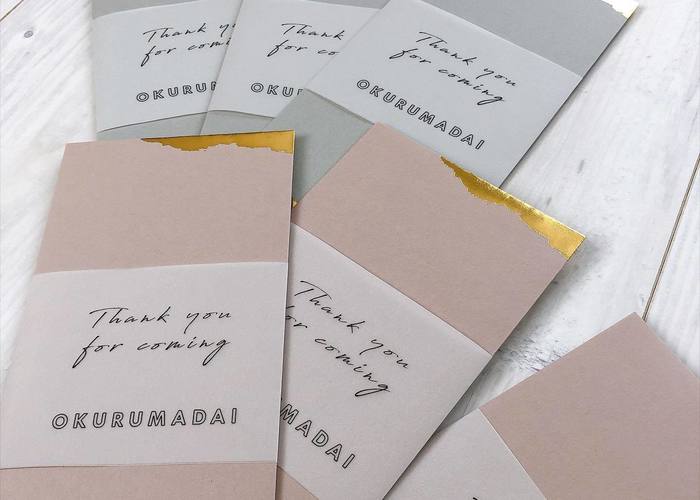 Thank you
for coming
OKURUMADAI
Thank
for co
OKU
Thank you
for coming
OKURUMADAI
Thank you
for coming
OKURUMADAI
Thank you
for coming
MADAI